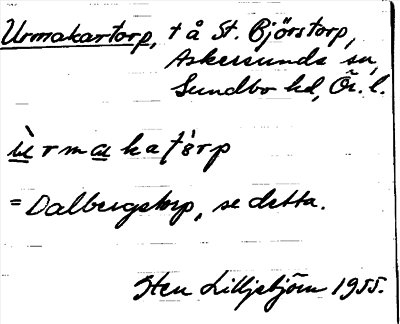 Urmakartorp, † å St. Björstorp,
Askersunds sn,
Sundbo hd, Ör. l.
ùrmakatɵ̀rp
= Dalbergstorp, se detta.
Sten Lilljebjörn 1955.